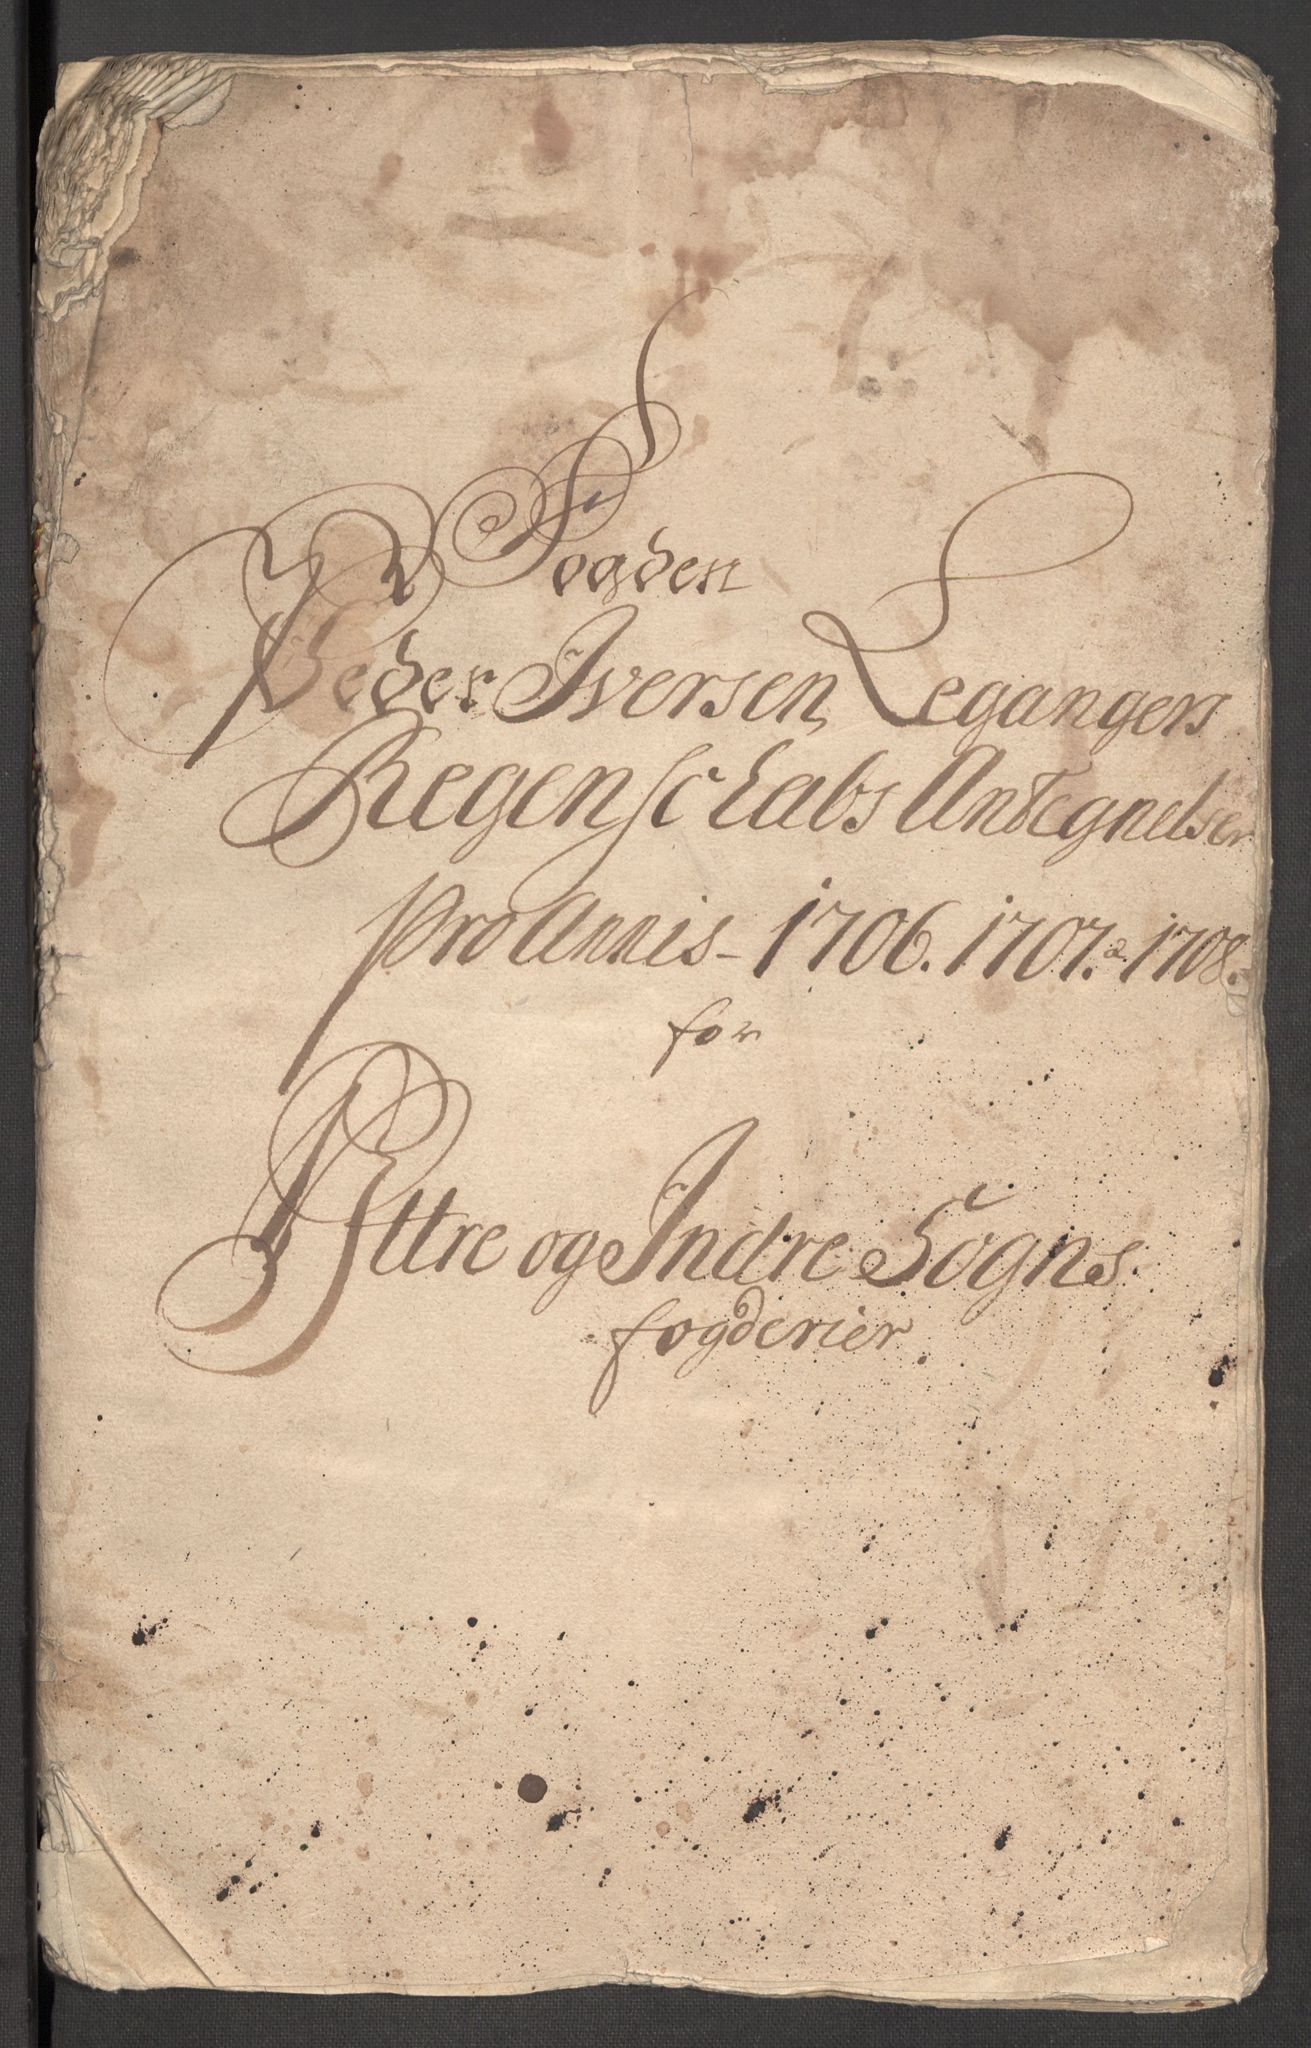 Fogden
Peder Iversen Legangers
Regenschabs Antegnelser
Pro Annis - 1706. 1707. a 1708.
for
Yttre og Indre Sogns
fogderier